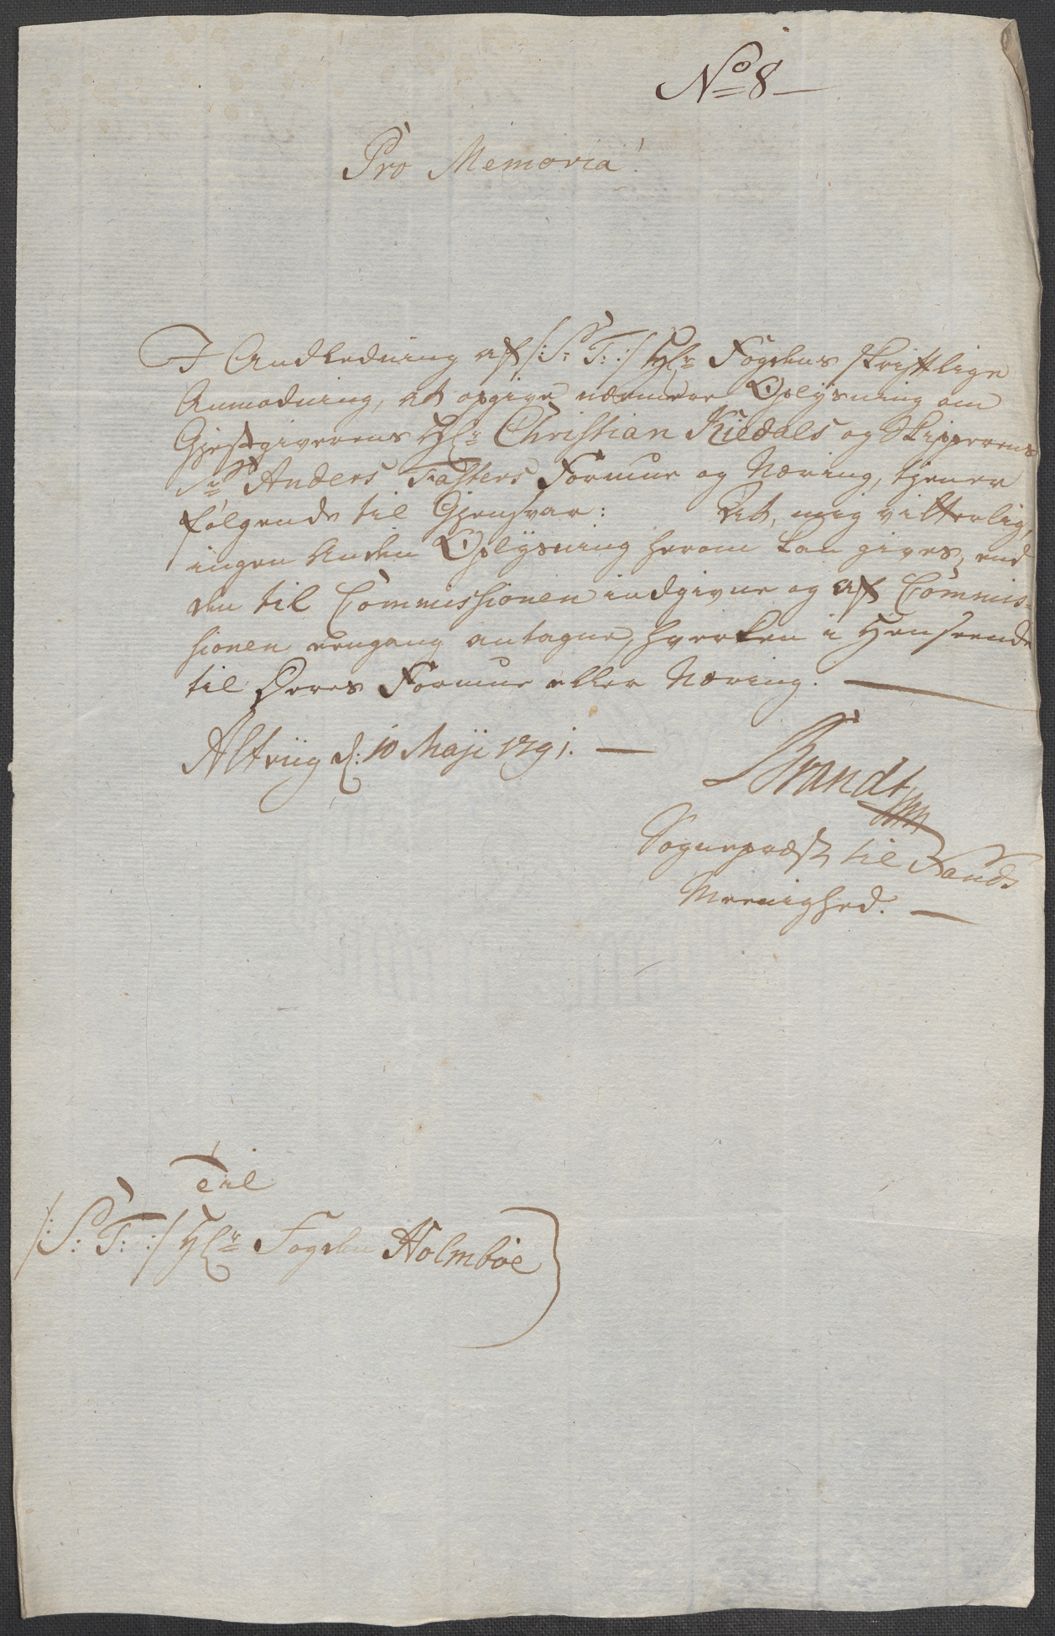 No 8
Pro Memoria!
I Andledning af /:S: T:/ Hr: Fogdens skriftlige
Anmodning, at opgive nærmere Oplysning om
Gjestgiverens Hr: Christian Kildals og Skipperens
Sr Anders Fasters Formue og Næring, tjener
følgende til Gjensvar: At, mig vitterlig,
ingen Anden Oplysning herom kan gives, end
den til Commissionen indgivne og af Commis-
sionen eengang antagne, hverken i Henseende
til Deres Formue eller Næring.
Altviig d: 10 Maji 1791.
Brandt
Sognepræst til Sands
Meenighed.
Til
/:S: T:/ Hr Fogden Holmböe